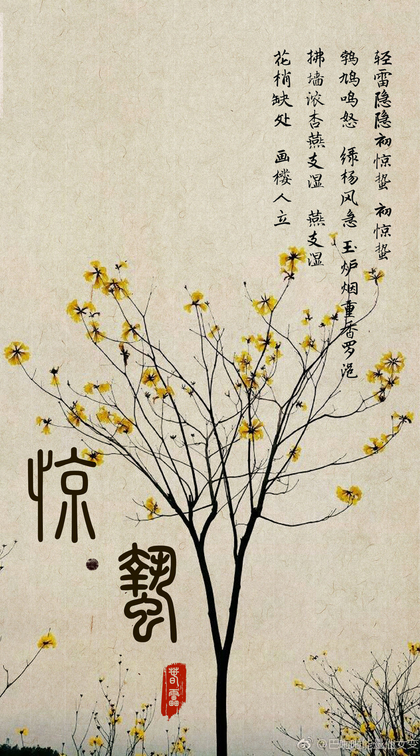 轻雷隐隐初惊蛰 初惊蛰
鹁鸠鸣怒 绿杨风急 玉炉烟重香罗浥
拂墙浓杏燕支湿 燕支湿
花梢缺处 画楼人立
惊
蟄